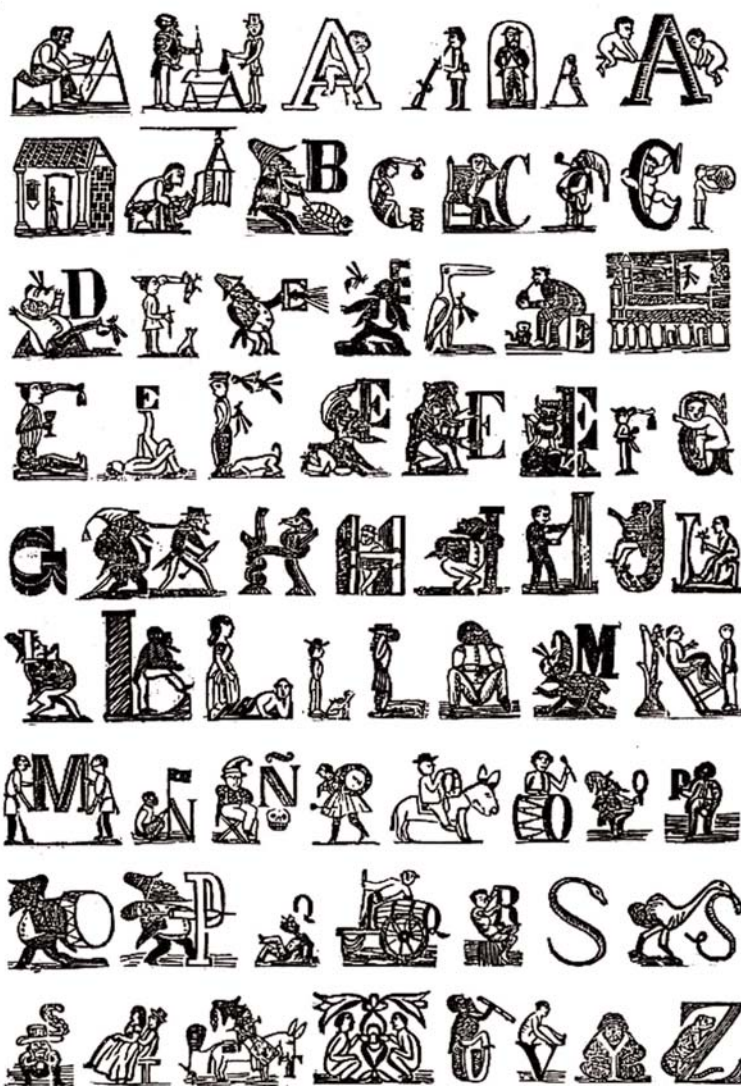 A A A A A A
B C C C
D E E E E E
E E E E E E F G
G H I I J L
L L L L L M N
M N Ñ O P
O P Q Q R S S
S T U V Y Z